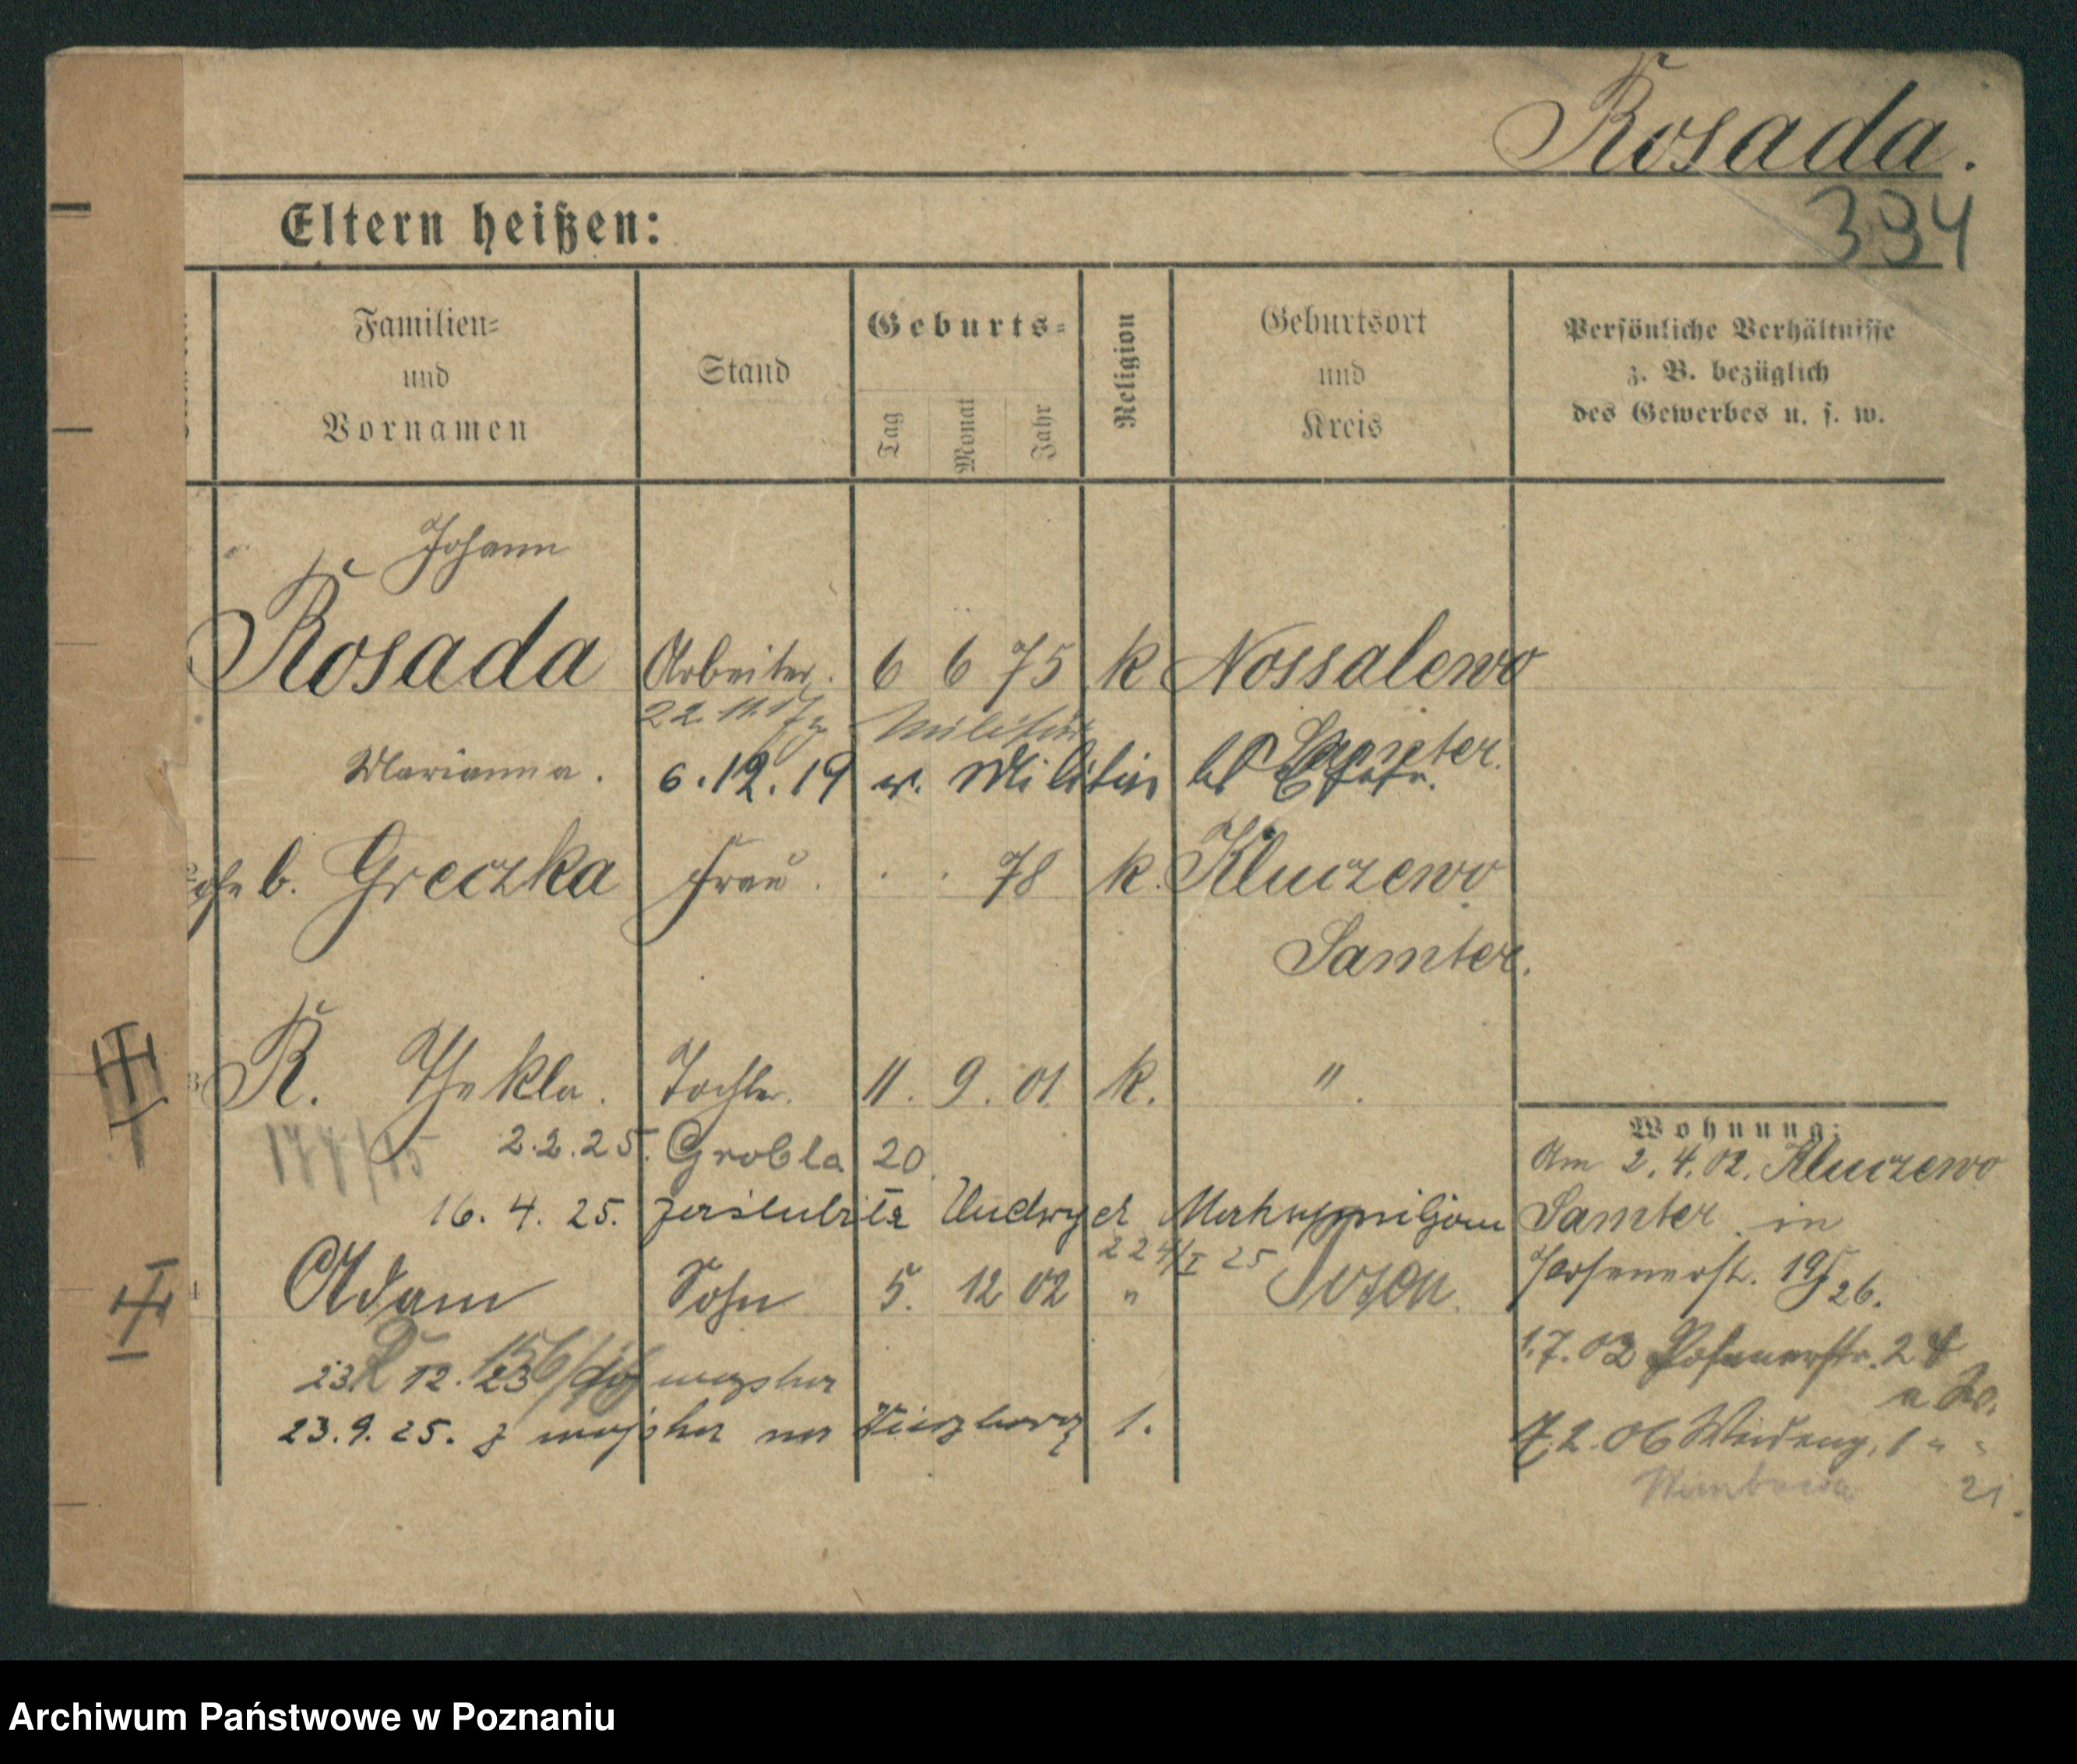 Rosada.
394
Eltern heißen:
Familien=
und
Vornamen
Stand
Geburts=
Tag
Monat
Jahr
Religion
Geburtsort
und
Kreis
Persönliche Verhältnisse
z. B. bezüglich
des Gewerbes u. s. w.
Johann
Rosada Arbeiter. 6 6 75 k Nossalewo
22.11.17 z Militär Samter.
Marianna. 6.12.19 v. Militär
geb. Greczka Frau. . . 78 k. Kluczewo
Samter.
R. Thekla. Tochter. 11. 9. 01. k. ".
177/15 2.2.25. Grobla 20
16. 4. 25. zaślubiła
224/I 25
Adam Sohn 5. 12 02 " Posen.
23. 12. 23 wojska
23.9.25. z wojska na 1.
Wohnung:
Am 2.4.02. Kluczewo
Samter in
Posenerst. 19/26.
1.7.02 Posenerstr. 24
7.2.06 Weideng. 1 " "
21.
Archiwum Państwowe w Poznaniu